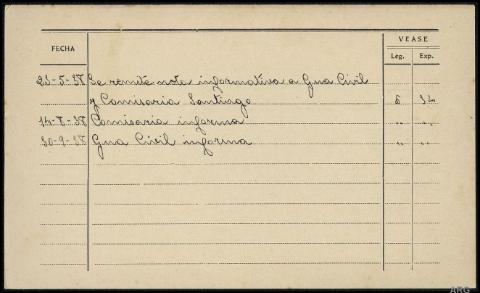 VEASE
FECHA Leg. Exp.
23-5-58 Se remite nota informativa a Gna Civil
y Comisaria Santiago 5 14
14-8-58 Comisaria informa " "
30-9-58 Gna Civil informa " "
ARG